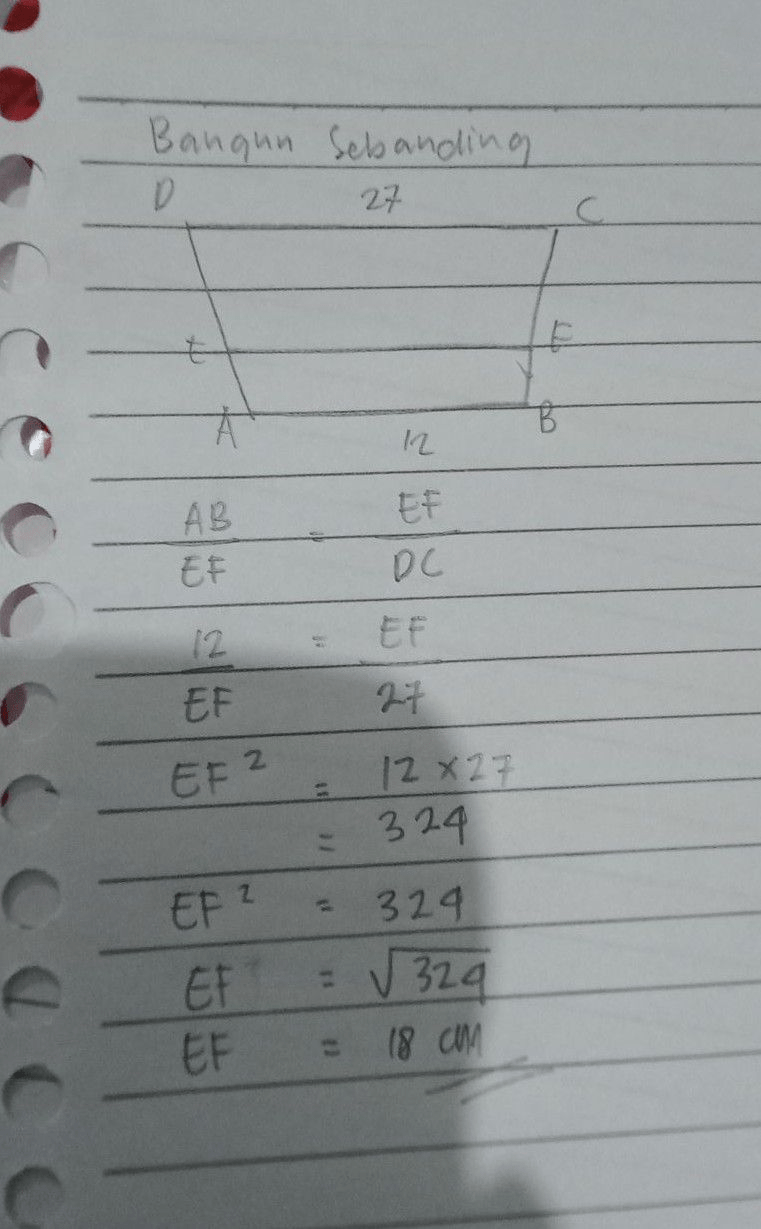 Bangun Sebanding
D 27 C
E F
A 12 B
AB = EF
EF DC
12 = EF
EF 27
EF² = 12 × 27
= 324
EF² = 324
EF = √324
EF = 18 cm